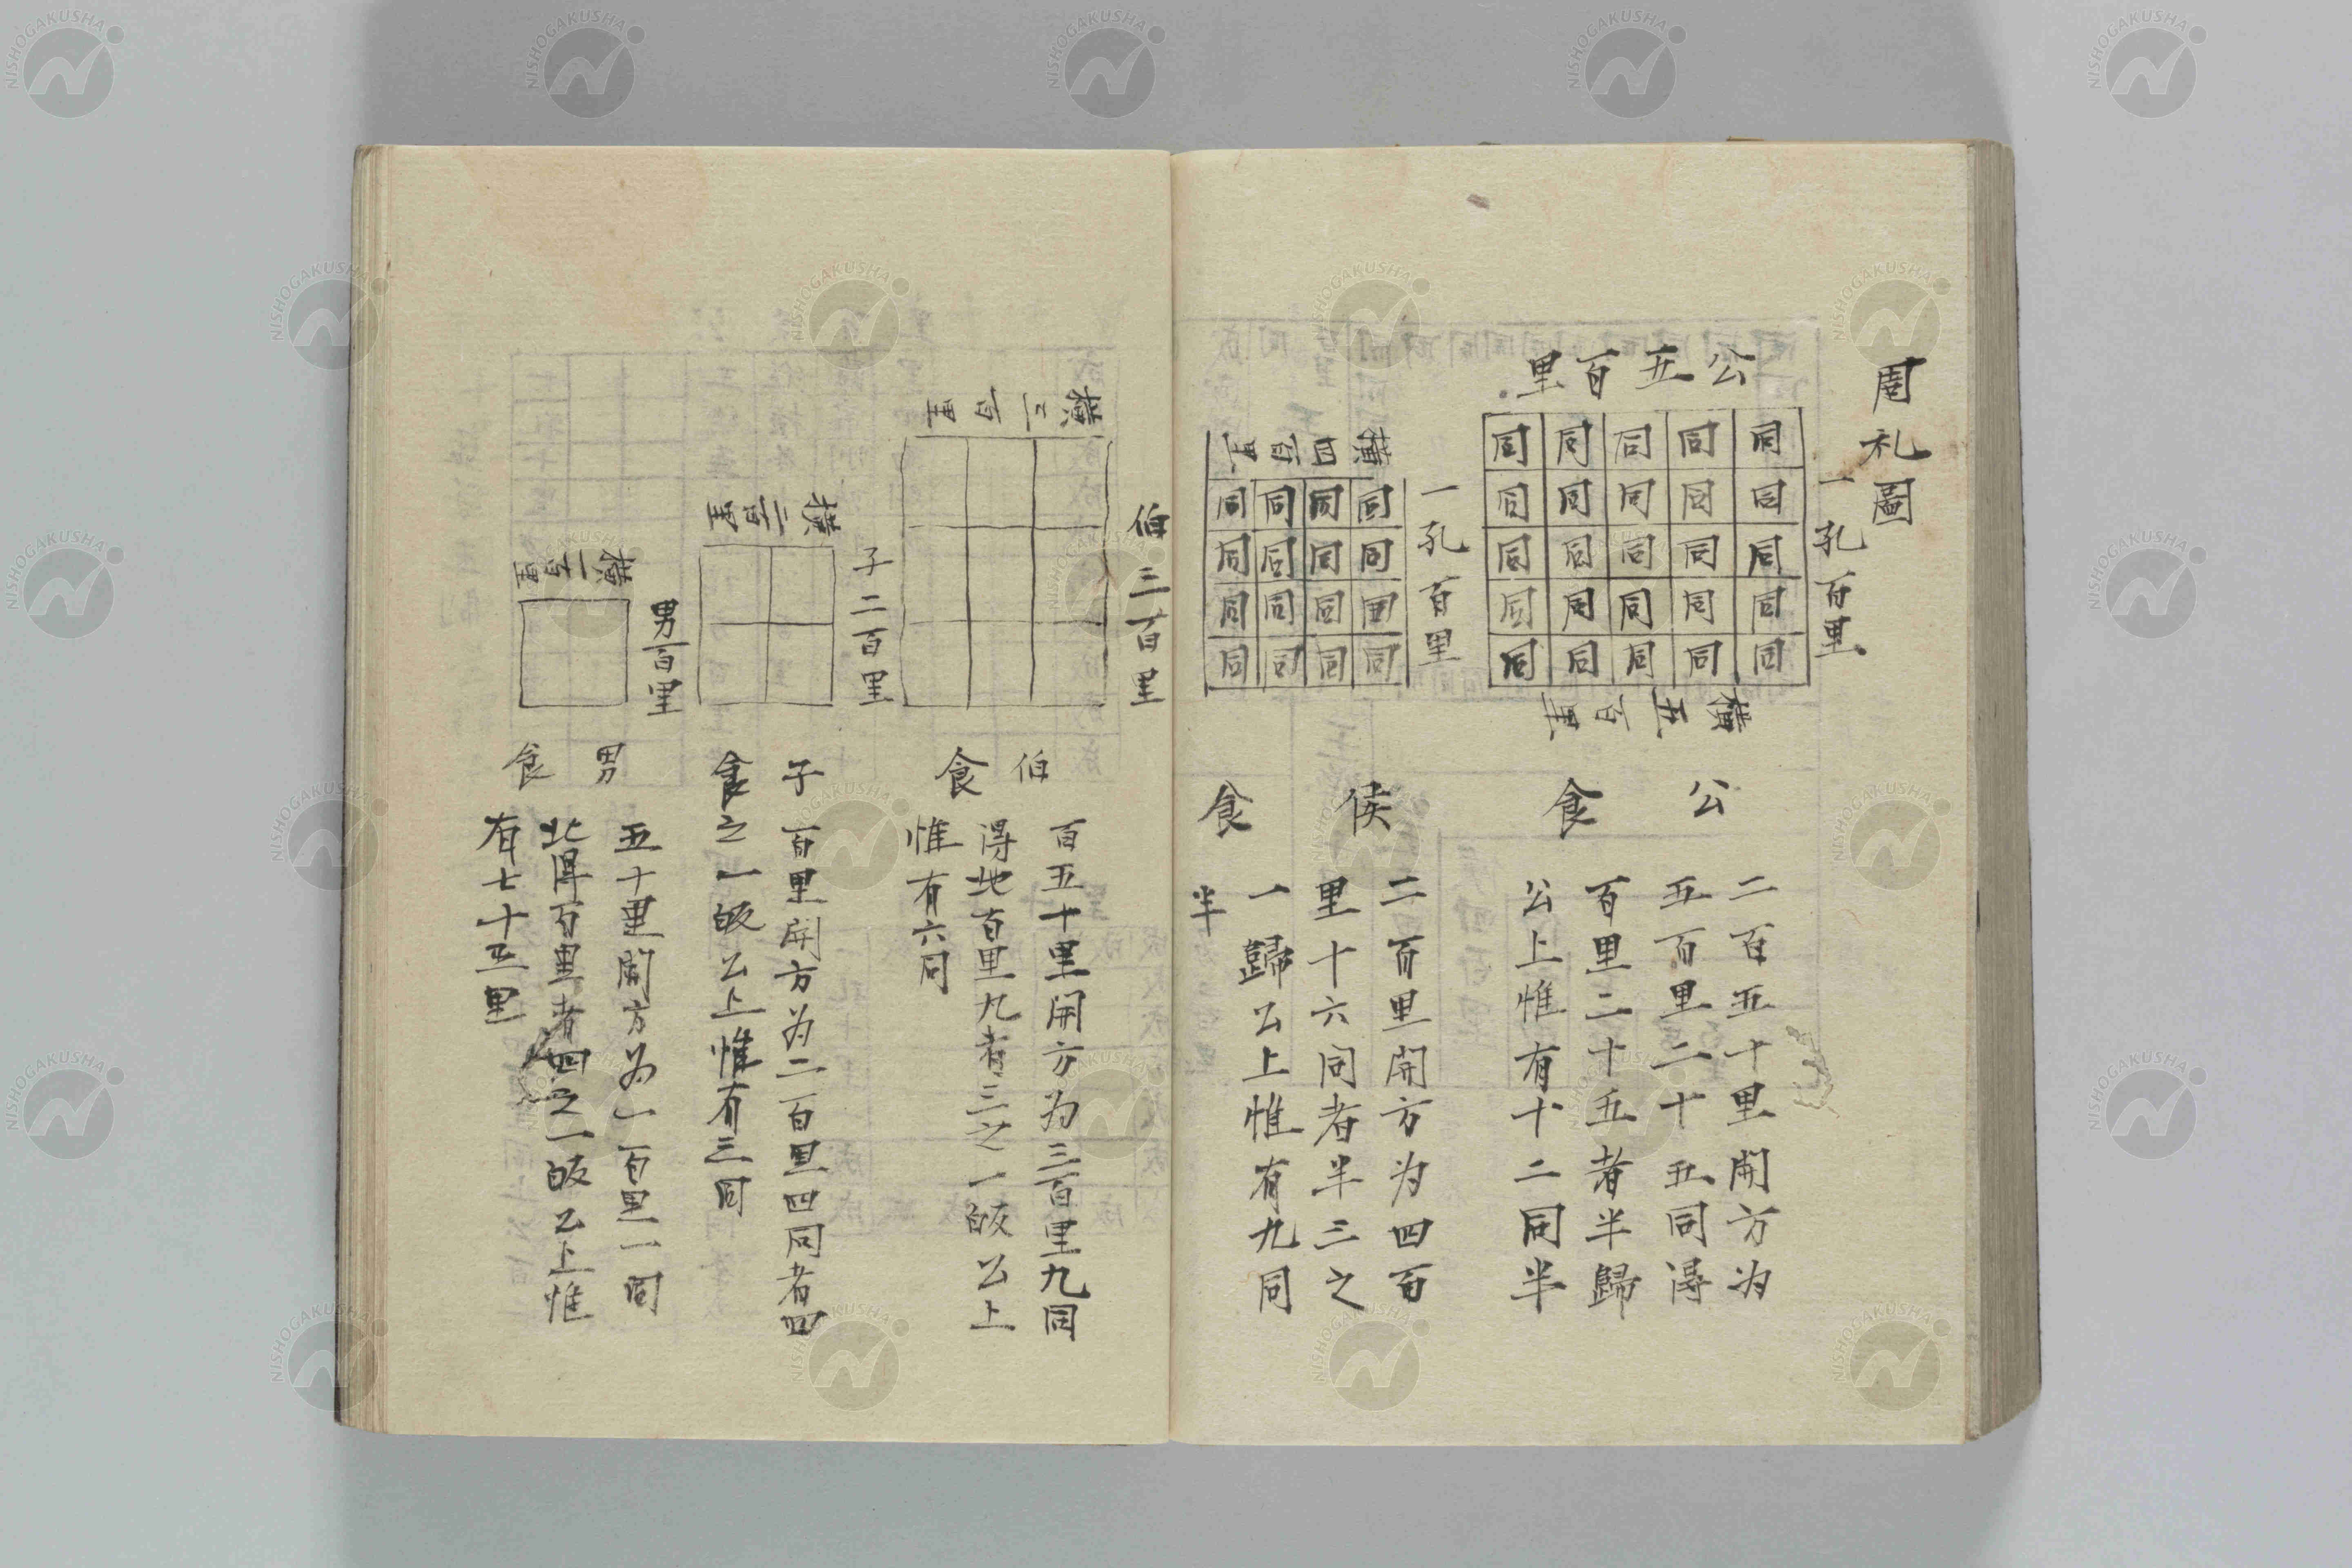 周礼啚
一孔百里
公五百里
同同同同同
同同同同同
同同同同同
同同同同同
同同同同同
横五百里
公食
二百五十里開方为
五百里二十五同淂
百里二十五者半歸
公上惟有十二同半
一孔百里
横四百里
同同同同
同同同同
同同同同
同同同同
侯食
二百里開方为四百
里十六同者半三之
一歸公上惟有九同
半
伯三百里
横三百里
伯食
百五十里開方为三百里九同
淂地百里九者三之一皈公上
惟有六同
子二百里
横二百里
子食
百里開方为二百里四同者四
之一皈公上惟有三同
男百里
横一百里
男食
五十里開方为一百里一同
北淂百里者四之一皈公上惟
有七十五里
NISHOGAKUSHA